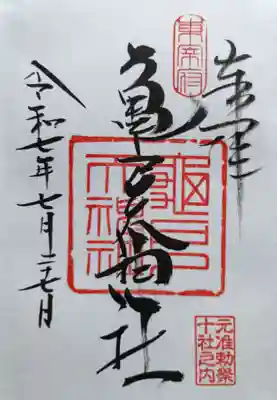 奉拝
東宰府
亀戸天神社
龜戸
天神社
元准勅祭
十社之内
令和七年七月二十七日